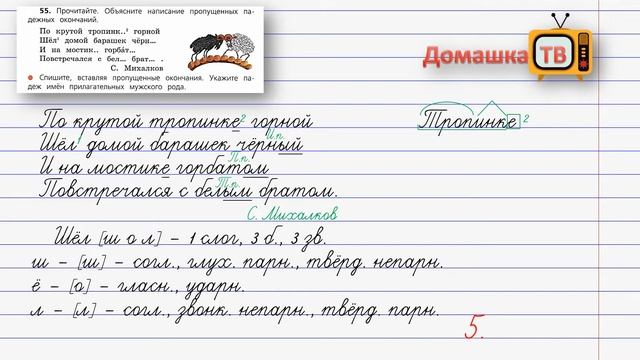 55. Прочитайте. Объясните написание пропущенных па-
дежных окончаний.
По крутой тропинк..² горной
Шёл¹ домой барашек чёрн...
И на мостик.. горбат...
Повстречался с бел... брат... .
С. Михалков
Спишите, вставляя пропущенные окончания. Укажите па-
деж имён прилагательных мужского рода.
Домашка ТВ
По крутой тропинке² горной
Тропинке 2
И.п.
Шёл¹ домой барашек чёрный
П.п.
И на мостике горбатом
Т.п.
Повстречался с белым братом.
С. Михалков
Шёл [ш о л] – 1 слог, 3 б., 3 зв.
ш – [ш] – согл., глух. парн., твёрд. непарн.
ё – [о] – гласн., ударн.
л – [л] – согл., звонк. непарн., твёрд. парн.
5.